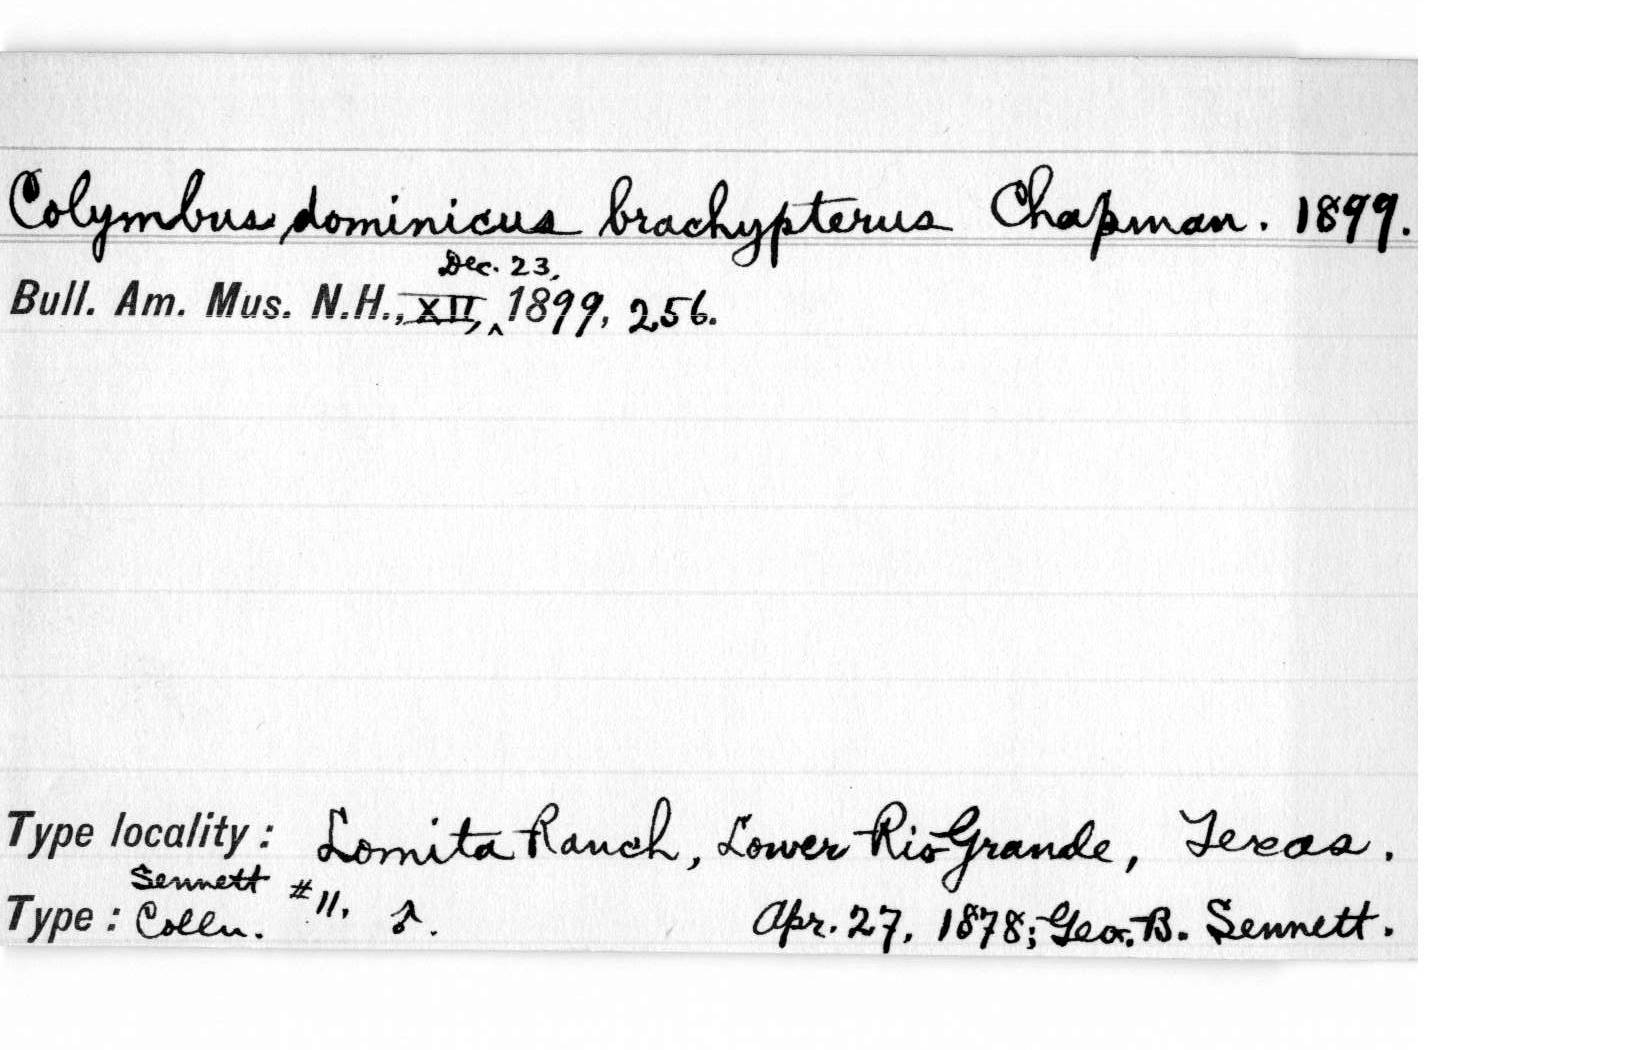 Colymbus dominicus brachypterus Chapman. 1899.
Dec. 23,
Bull. Am. Mus. N.H., XII, ^ 1899, 256.
Type locality: Lomita Ranch, Lower Rio Grande, Texas.
Sennett
Type: Colln. #11, ♂. Apr. 27, 1878; Geo. B. Sennett.